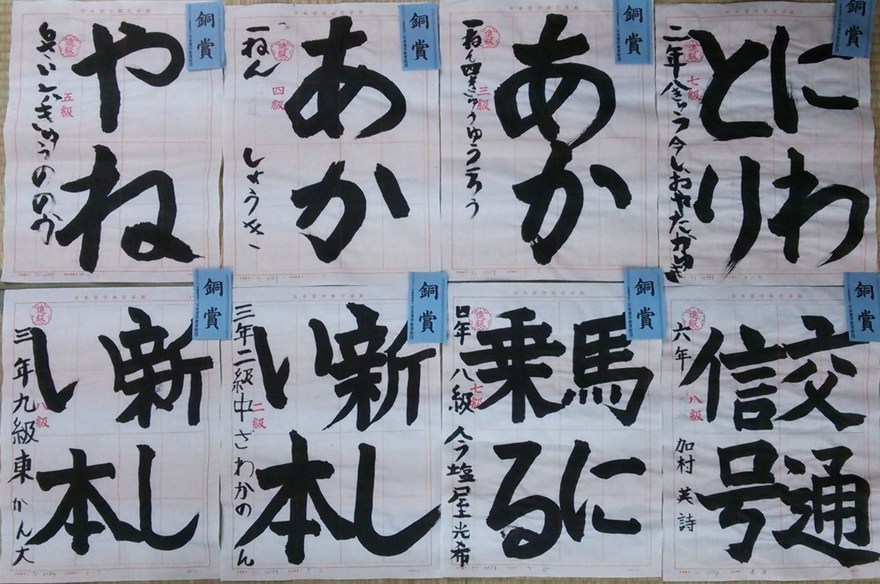 銅賞
やね
五級
銅賞
あか
一ねん しょうき
四級
銅賞
あか
一ねん四きゅう
三級
銅賞
にわ
とり
二年八きゅう
七級
銅賞
新し
い本
三年九級東かん大
八級
銅賞
新し
い本
三年二級中ざわかのん
二級
銅賞
馬に
乗る
四年八級今塩屋光希
七級
銅賞
交通
信号
六年 加村英詩
八級